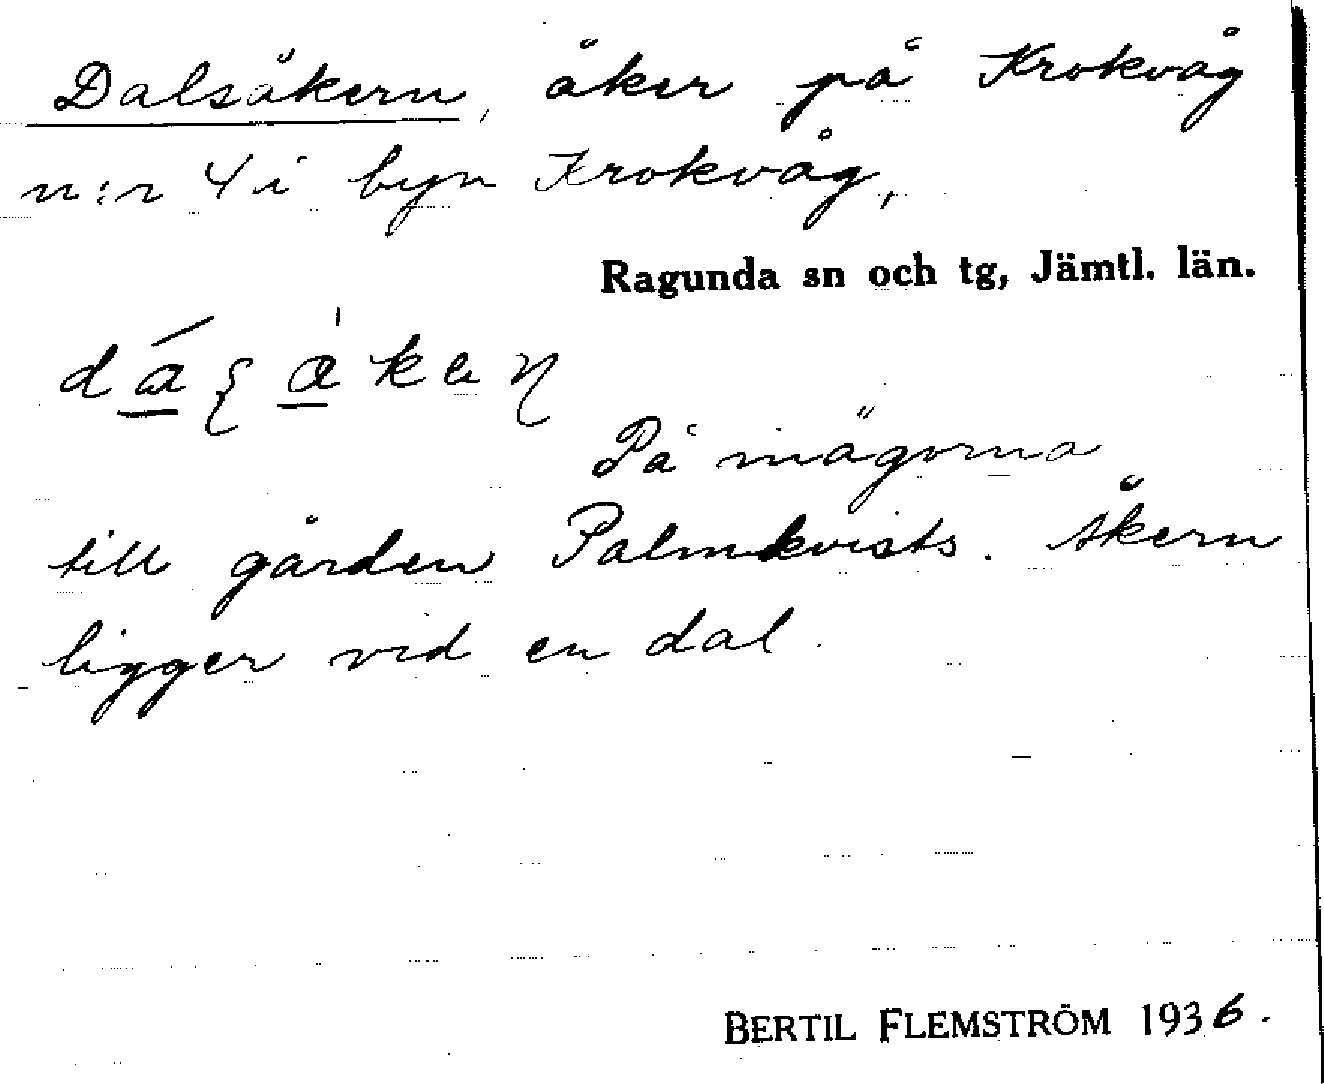 Dalsåkern, åker på Krokvåg
n:r 4 i byn Krokvåg,
Ragunda sn och tg, Jämtl. län.
På mägorna
till gården Palmkvists. Åkern
ligger vid en dal.
BERTIL FLEMSTRÖM 1936.